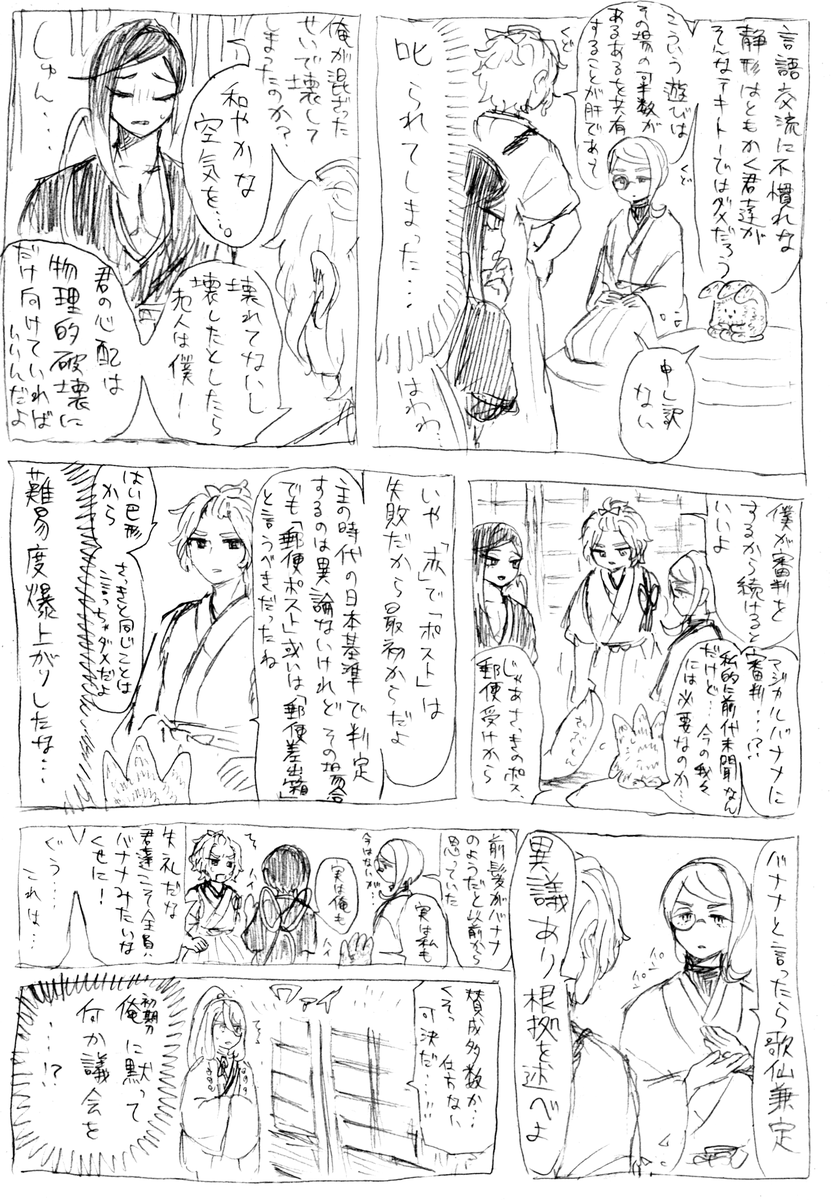 言語交流に不慣れな
静形はともかく君達が
そんなテキトーではダメだろう
くど
こういう遊びは
その場の半数が
あるあるを共有
することが肝であって
くど
叱られてしまった…
はわわ…
申し訳
ない
俺が混ざった
せいで壊して
しまったのか?
和やかな
空気を…。
しゅん…
壊れてないし
壊したとしたら
犯人は僕!
君の心配は
物理的破壊に
だけ向けていれば
いいんだよ
僕が審判を
するから続けると
いいよ
マジカルバナナに
審判…!?
私的に前代未聞なん
だけど…今の我々
には必要なのか…
じゃあさっきのポスト、
郵便受けから
いや「赤」で「ポスト」は
失敗だから最初からだよ
主の時代の日本基準で判定
するのは異論ないけれどその場合
でも「郵便ポスト」或いは「郵便差出箱」
と言うべきだったね
はい巴形
から
さっきと同じことは
言っちゃダメだよ
難易度爆上がりしたな…
バナナと言ったら歌仙兼定
異議あり根拠を述べよ
前髪がバナナ
のようだと以前から
思っていた
今はないが…
実は私も
実は俺も
ハイ
失礼だな
君達こそ全員
バナナみたいな
くせに!
ぐぅ…
これは…
賛成多数か…
くそっ 仕方ない
可決だ…!!
ワァイ
初期刀
俺に黙って
何か議会を
…!?